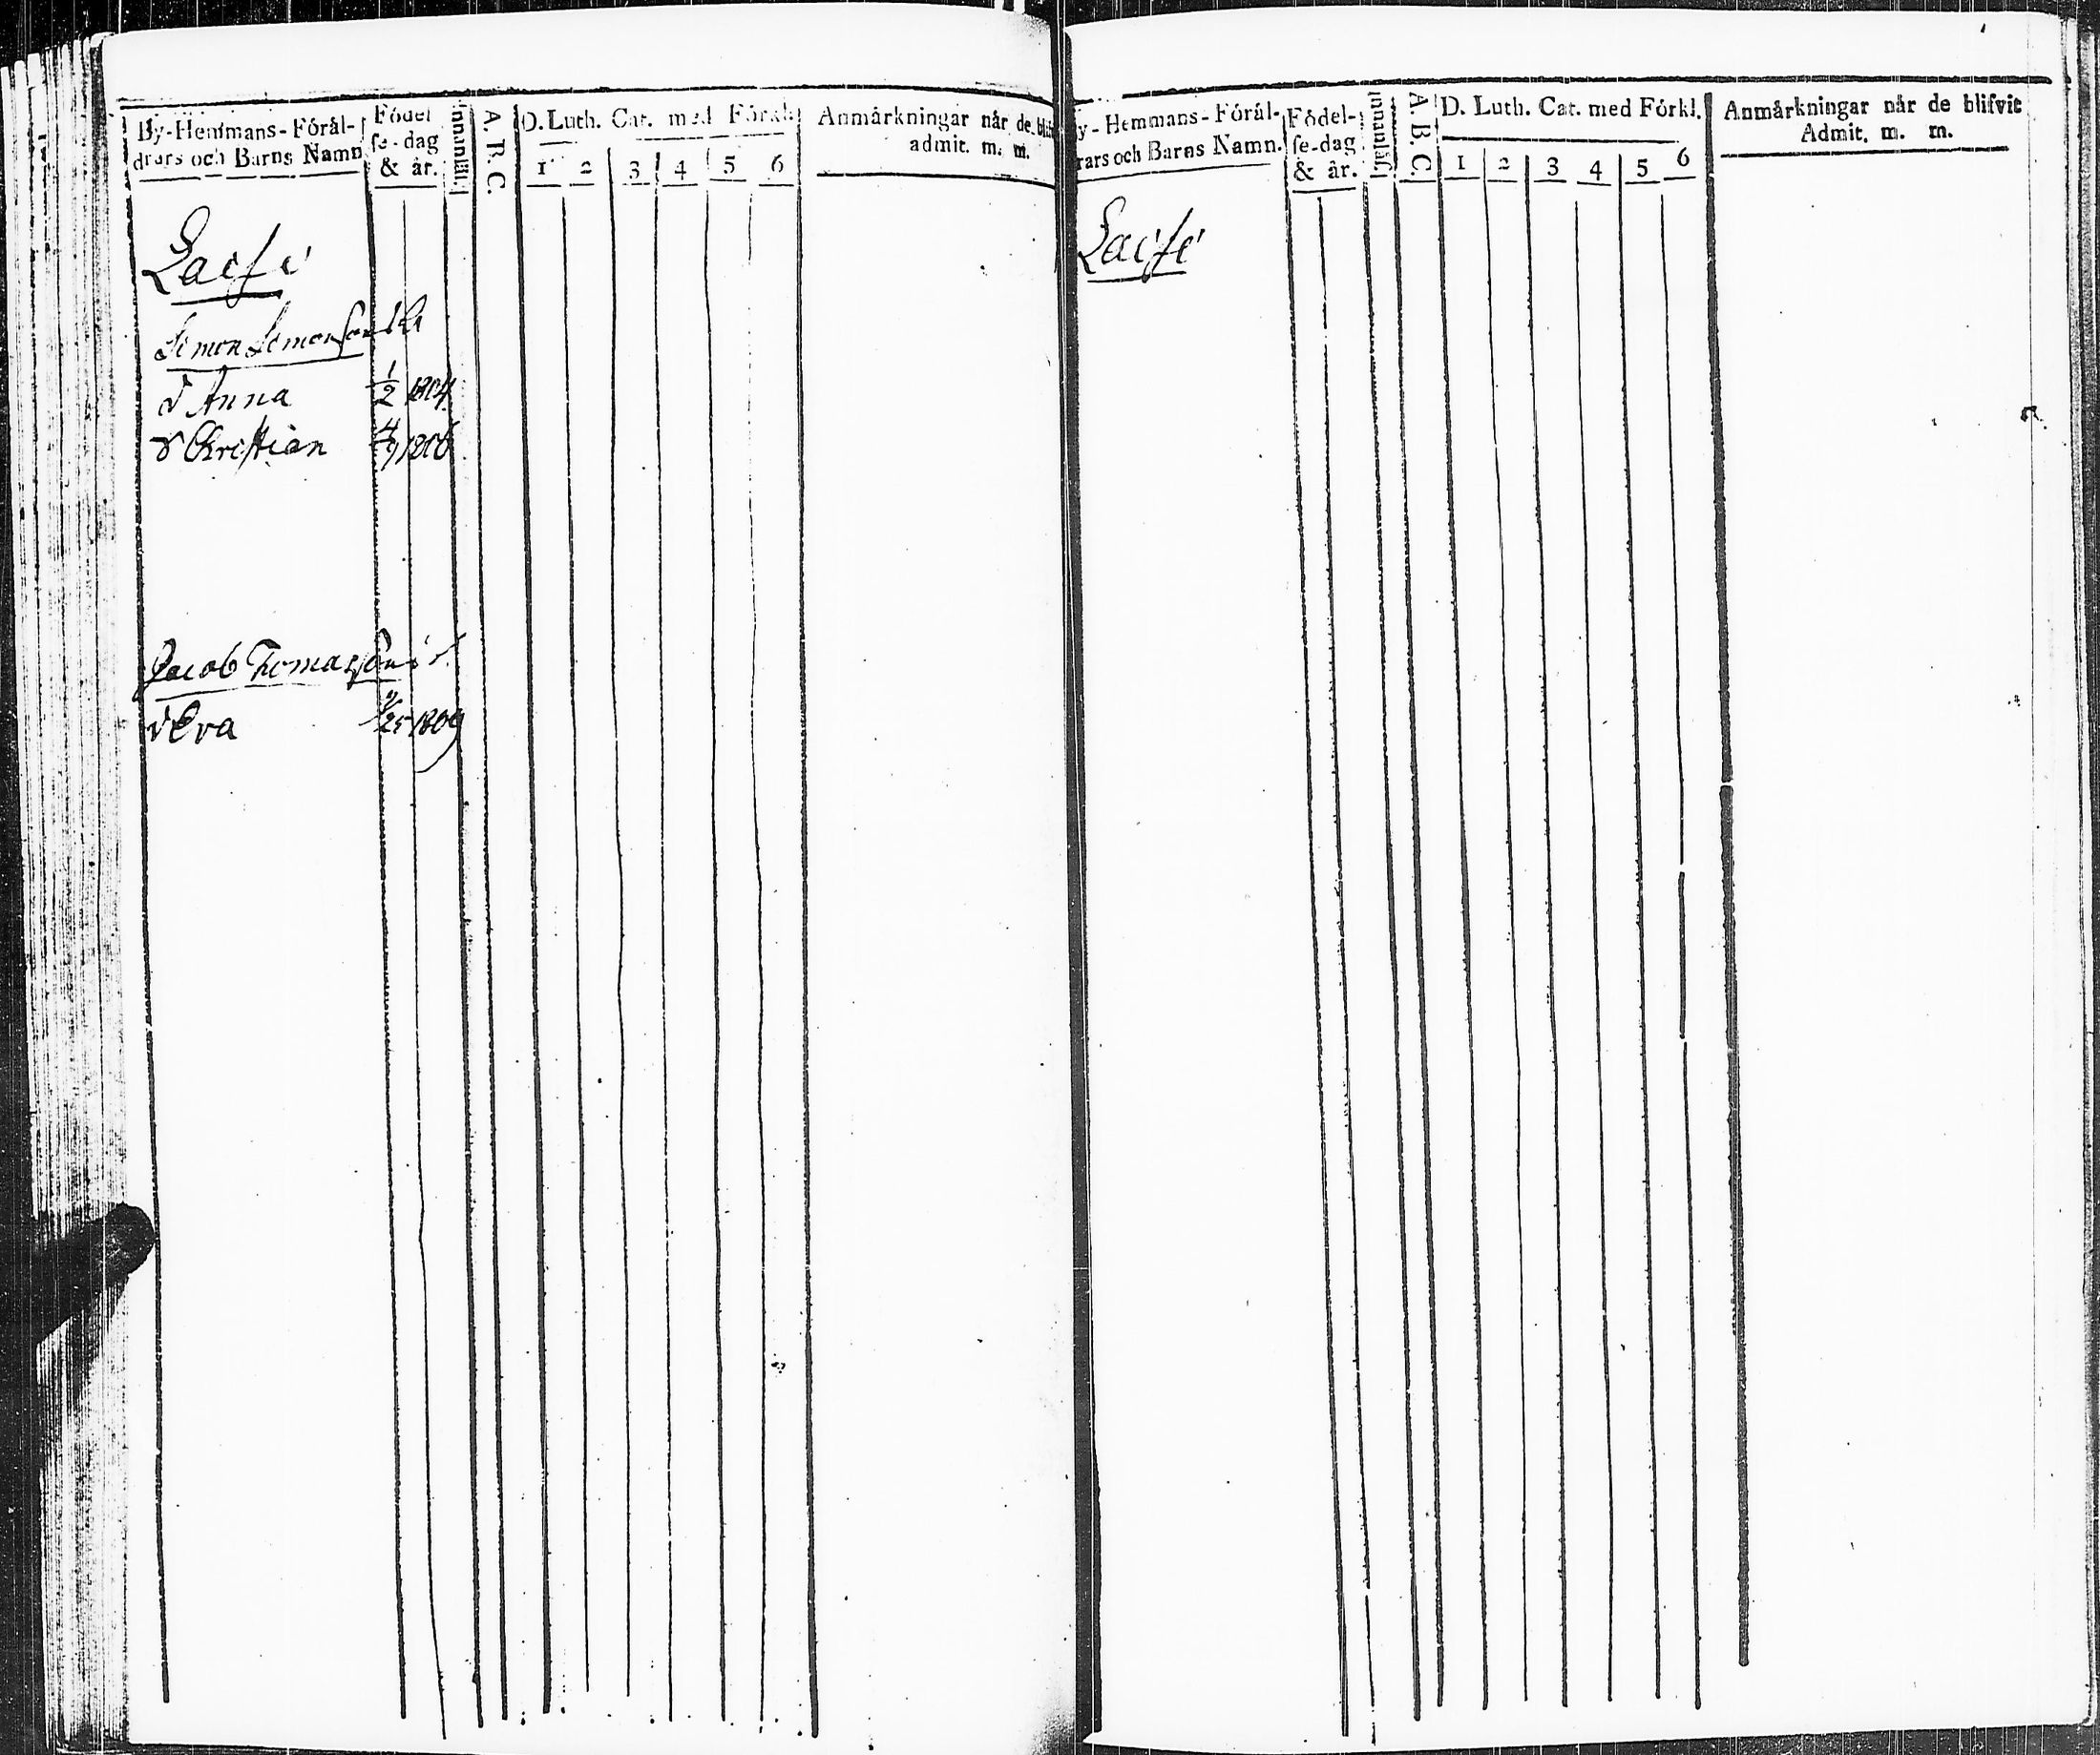 By-Hemmans-Förål-
drars och Barns Namn
Födel
se-dag
& år.
Innanläs.
A. B. C.
D. Luth. Cat. med Förkl.
1 2 3 4 5 6
Anmärkningar når de blif
admit. m. m.
Laisi
Simon Simonsson
d Anna 1/2 1804
Christian 1806
Jacob Tomasson
d Eva 1809
y-Hemmans-Förål-
rars och Barns Namn.
Födel-
se-dag
& år.
Innanläs.
A. B. C.
D. Luth. Cat. med Förkl.
1 2 3 4 5 6
Anmärkningar når de blifvit
Admit. m. m.
Laisi